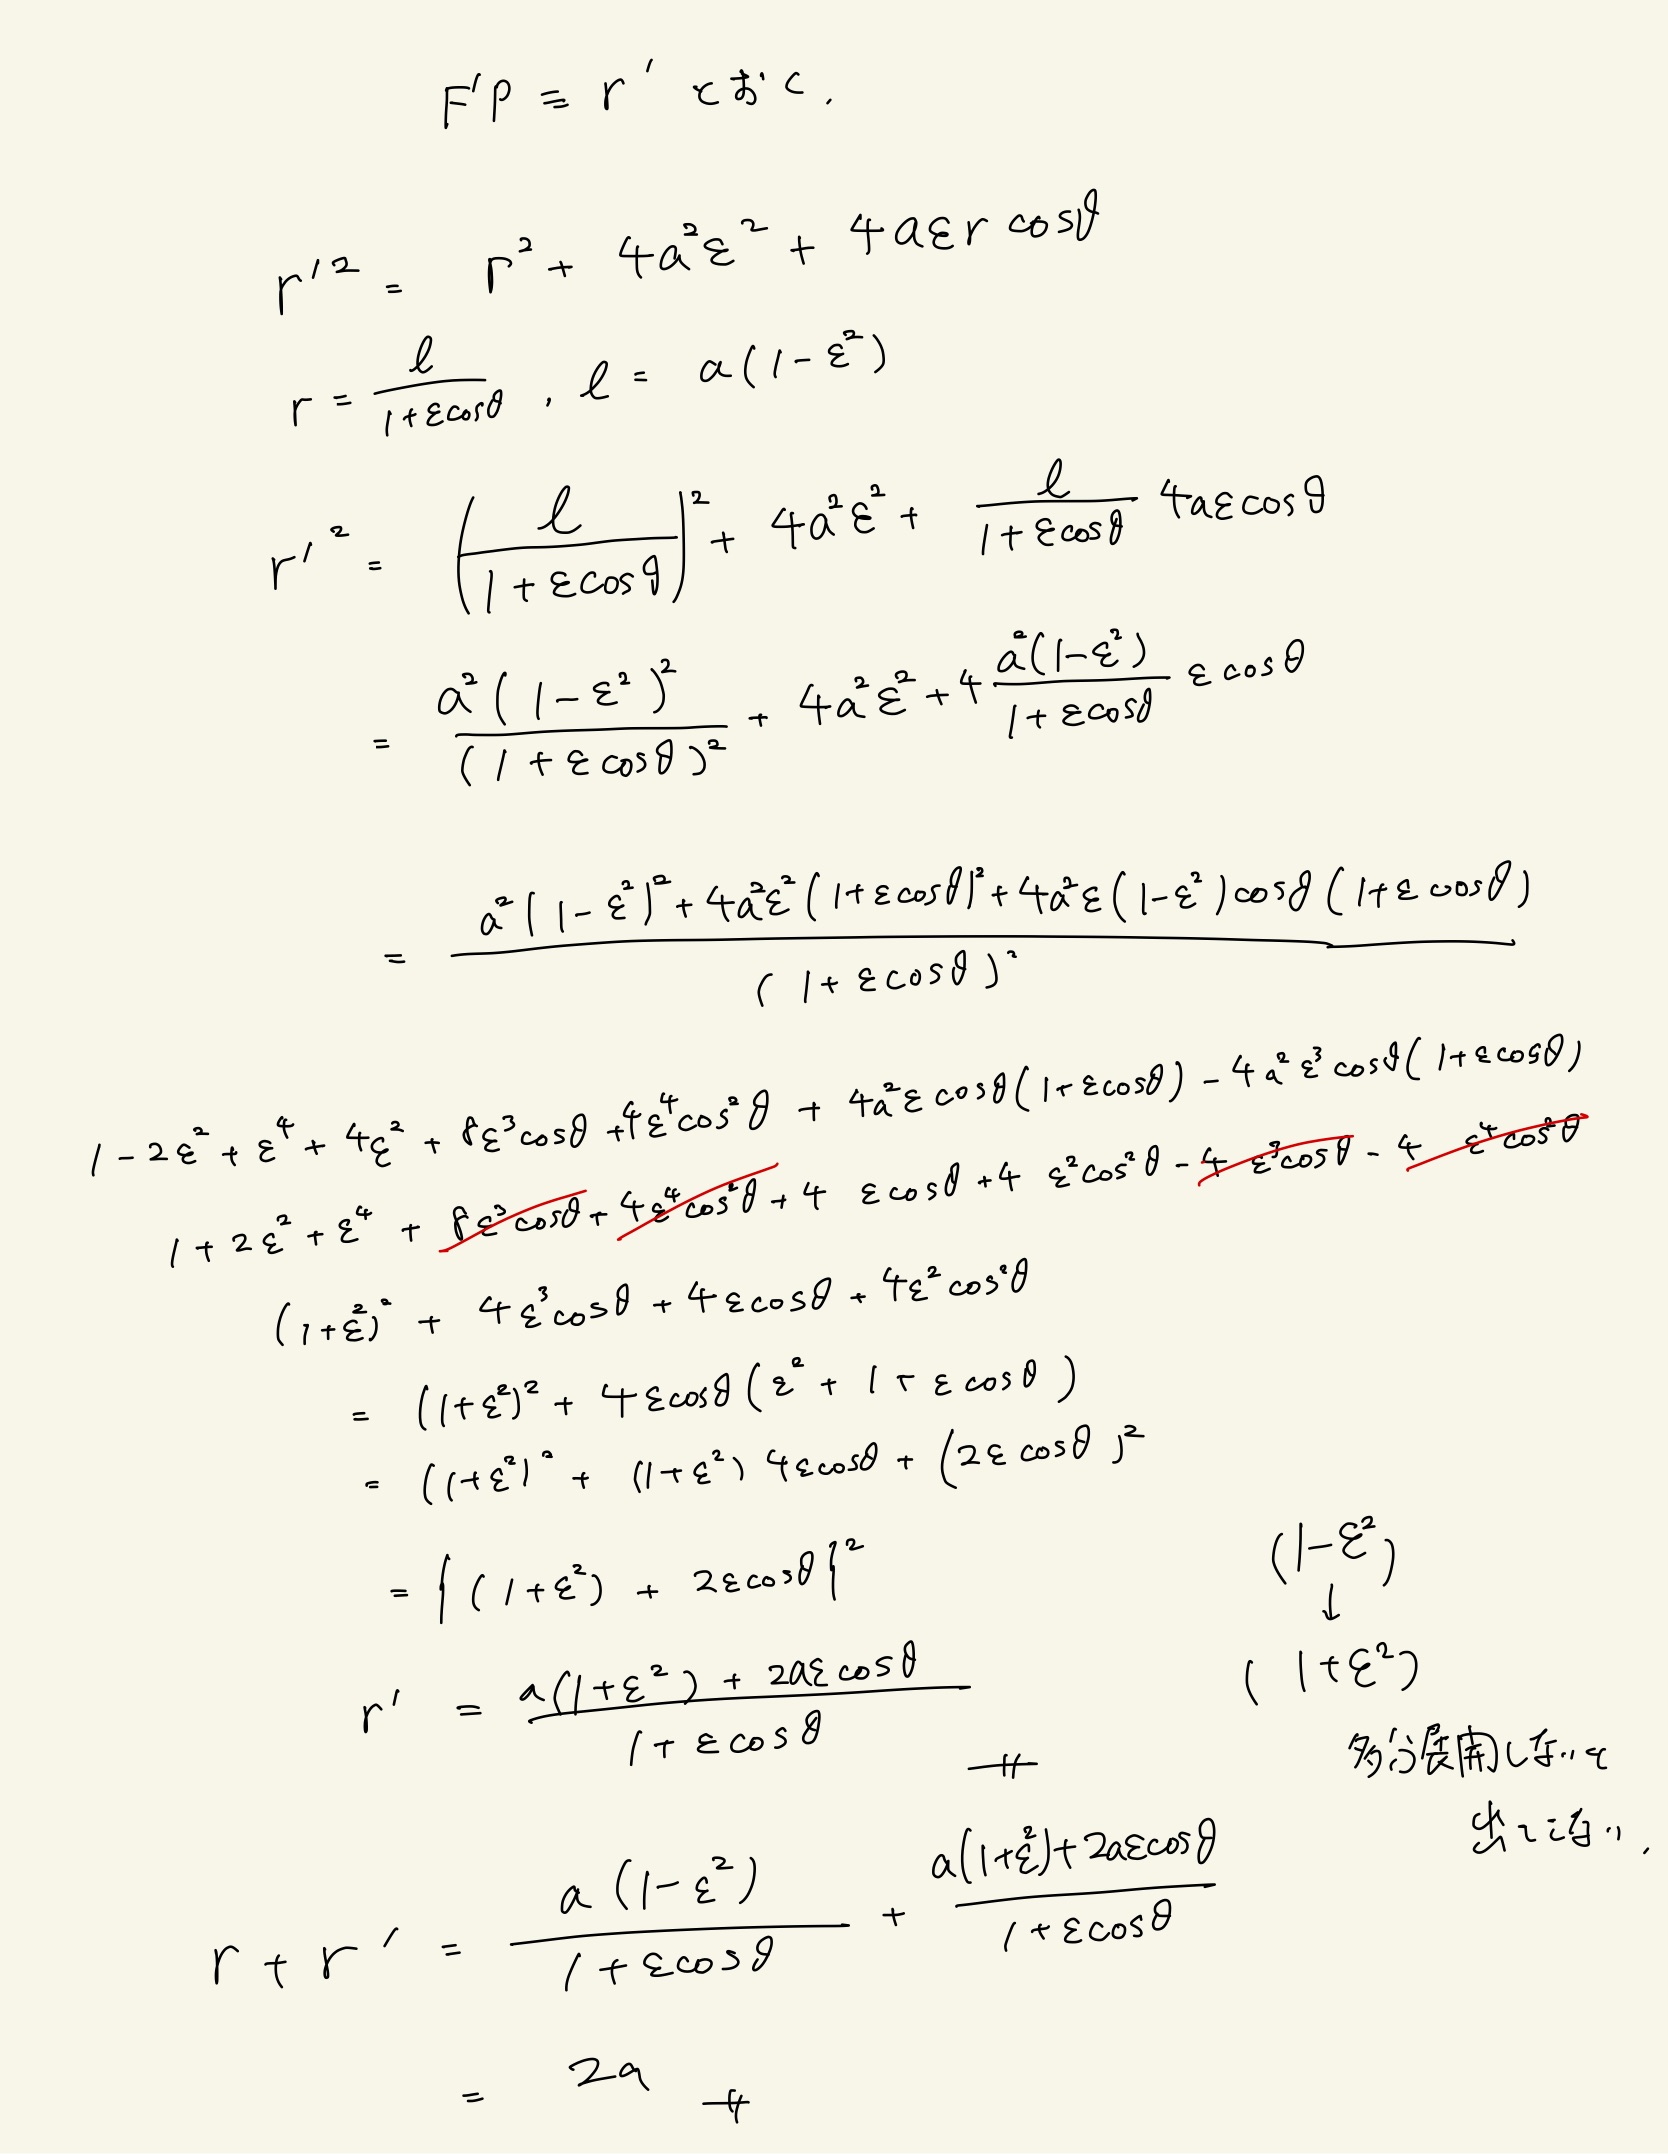 F'P = r' とおく.
r'² = r² + 4a²ε² + 4aεr cosθ
r = l/(1+εcosθ) , l = a(1-ε²)
r'² = (l/(1+εcosθ))² + 4a²ε² + l/(1+εcosθ) 4aεcosθ
= a²(1-ε²)²/(1+εcosθ)² + 4a²ε² + 4 a²(1-ε²)/(1+εcosθ) εcosθ
= (a²(1-ε²)² + 4a²ε²(1+εcosθ)² + 4a²ε(1-ε²)cosθ(1+εcosθ))/(1+εcosθ)²
1-2ε²+ε⁴+4ε²+8ε³cosθ+4ε⁴cos²θ + 4a²εcosθ(1+εcosθ) - 4a²ε³cosθ(1+εcosθ)
1+2ε²+ε⁴+8ε³cosθ+4ε⁴cos²θ+4 εcosθ+4 ε²cos²θ-4 ε³cosθ-4 ε⁴cos²θ
(1+ε²)² + 4ε³cosθ + 4εcosθ + 4ε²cos²θ
= (1+ε²)² + 4εcosθ(ε²+1+εcosθ)
= (1+ε²)² + (1+ε²)4εcosθ + (2εcosθ)²
= {(1+ε²) + 2εcosθ}²
r' = (a(1+ε²)+2aεcosθ)/(1+εcosθ)
(1-ε²)
↓
(1+ε²)
多分展開しないと
出てこない.
r + r' = a(1-ε²)/(1+εcosθ) + (a(1+ε²)+2aεcosθ)/(1+εcosθ)
= 2a